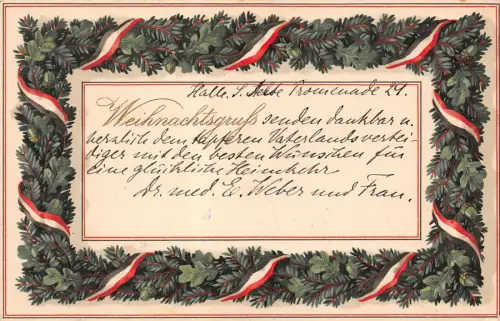 Halle. S. Alte Promenade 29.
Weihnachtsgruß senden dankbar u.
herzlich dem tapferen Vaterlandsvertei-
diger mit den besten Wünschen für
eine glückliche Heimkehr
Dr. med. E. Weber und Frau.